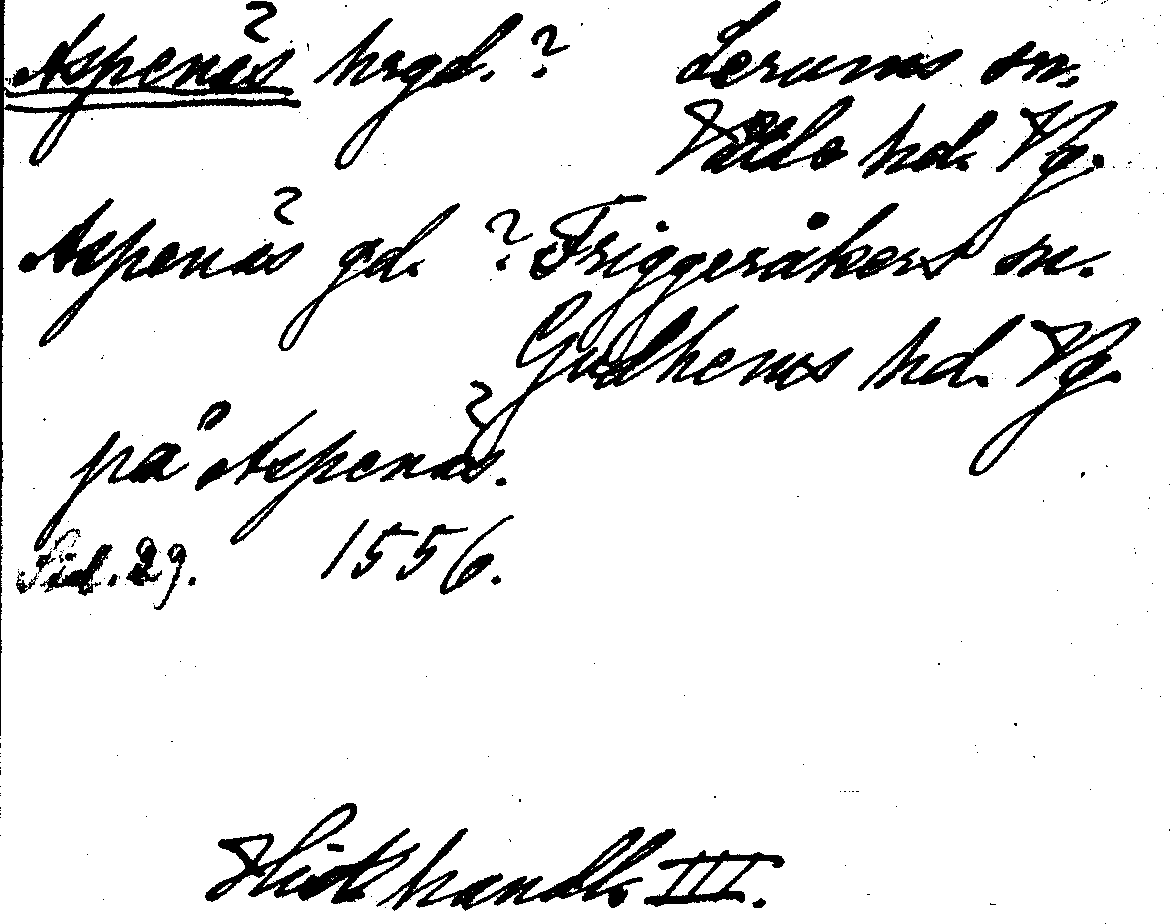 Aspenäs hrgd. ? Lerums sn.
Vätle hd. Vg.
Aspenäs gd. ? Friggeråkers sn.
Gudhems hd. Vg.
på Aspenäs.
Sid. 29. 1556.
Hist. handl. III.